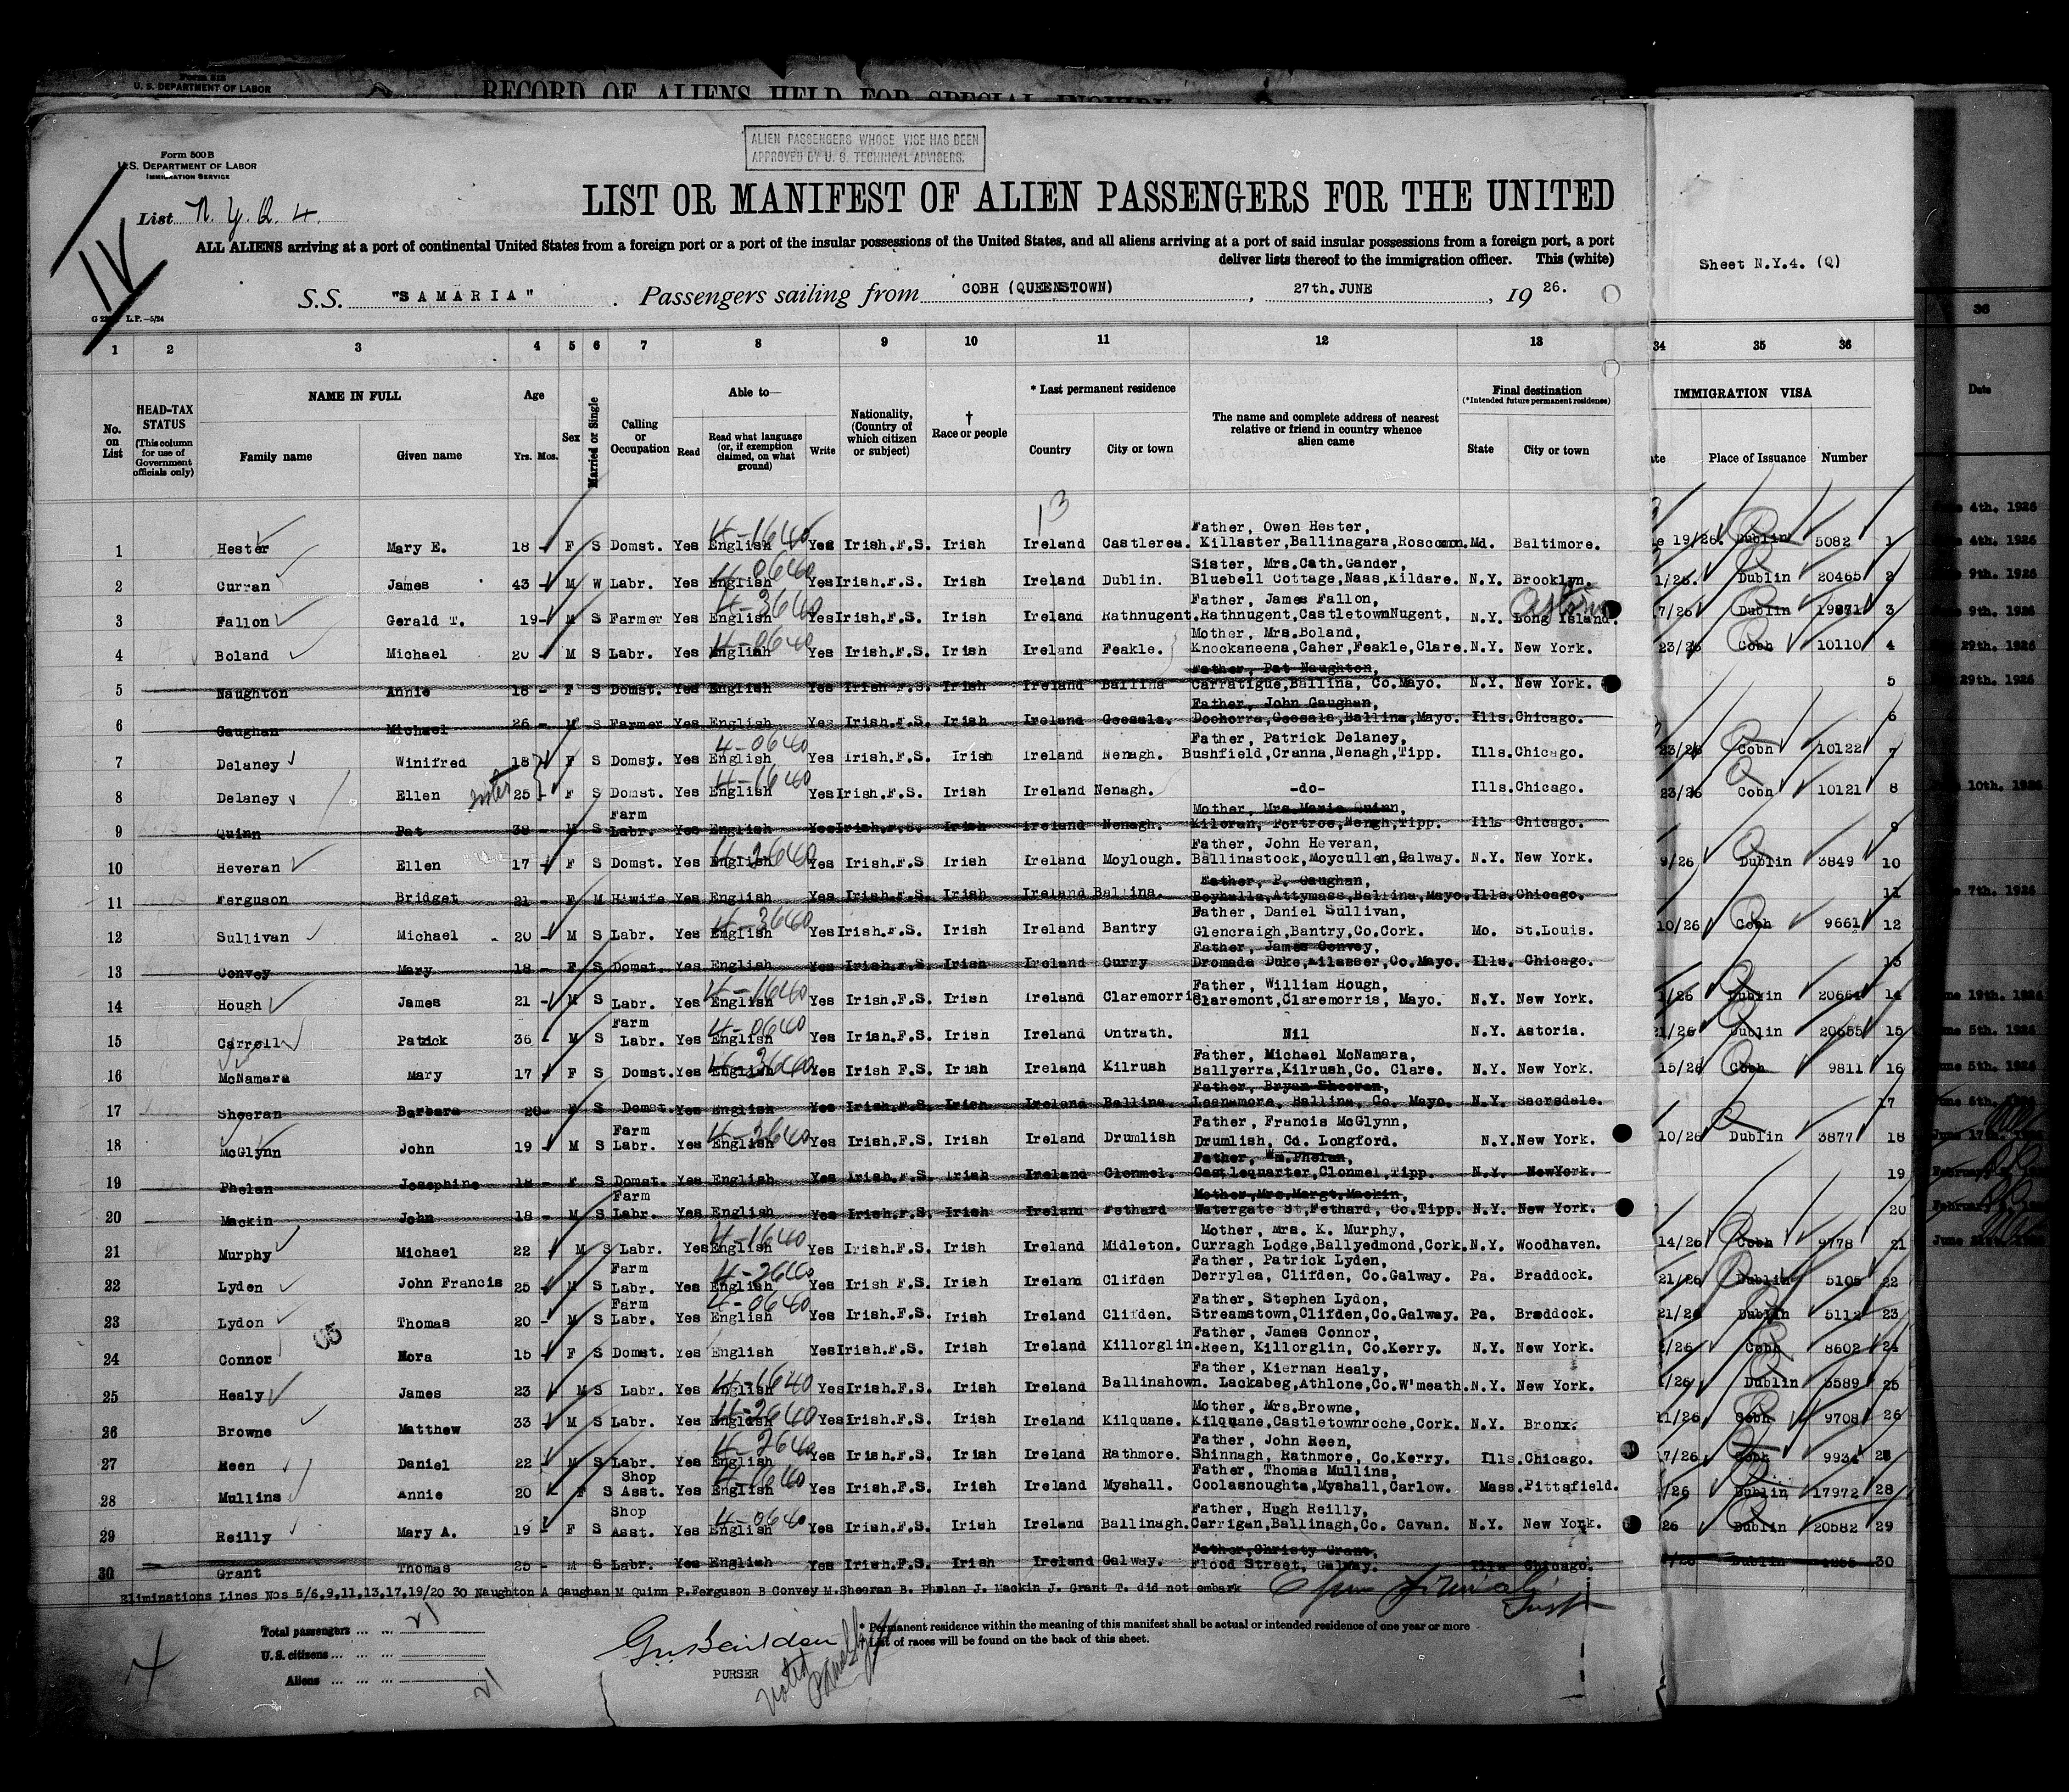 Form 512
U. S. DEPARTMENT OF LABOR
RECORD OF ALIENS HELD FOR SPECIAL INQUIRY
ALIEN PASSENGERS WHOSE VISE HAS BEEN
APPROVED BY U. S. TECHNICAL ADVISERS.
Form 500 B
U.S. DEPARTMENT OF LABOR
IMMIGRATION SERVICE
IV
List N. Y. Q. 4.
LIST OR MANIFEST OF ALIEN PASSENGERS FOR THE UNITED
ALL ALIENS arriving at a port of continental United States from a foreign port or a port of the insular possessions of the United States, and all aliens arriving at a port of said insular possessions from a foreign port, a port
deliver lists thereof to the immigration officer. This (white)
Sheet N.Y.4. (Q)
S.S. "SAMARIA" . Passengers sailing from COBH (QUEENSTOWN), 27th. JUNE, 19 26.
L.P.—5/24
1 2 3 4 5 6 7 8 9 10 11 12 13 34 35 36
No. on List
HEAD-TAX STATUS (This column for use of Government officials only)
NAME IN FULL
Family name Given name
Age
Yrs. Mos.
Sex
Married or Single
Calling or Occupation
Able to—
Read
Read what language (or, if exemption claimed, on what ground)
Write
Nationality, (Country of which citizen or subject)
† Race or people
* Last permanent residence
Country City or town
The name and complete address of nearest relative or friend in country whence alien came
Final destination
(*Intended future permanent residence)
State City or town
IMMIGRATION VISA
Place of Issuance Number
36
Date
13
Father, Owen Hester,
1 Hester Mary E. 18 - F S Domst. Yes English 4-1640 Yes Irish.F.S. Irish Ireland Castlerea. Killaster,Ballinagara,Roscomon. Md. Baltimore. 19/26. Dublin 5082 1
Sister, Mrs.Cath.Gander,
2 Curran James 43 - M W Labr. Yes English 4-0640 Yes Irish.F.S. Irish Ireland Dublin. Bluebell Cottage,Naas,Kildare. N.Y. Brooklyn. 1/26. Dublin 20465 2
Father, James Fallon, Astoria
3 Fallon Gerald T. 19- M S Farmer Yes English 4-3640 Yes Irish.F.S. Irish Ireland Rathnugent. Rathnugent,CastletownNugent, N.Y. Long Island. 7/26 Dublin 19871 3
Mother, Mrs.Boland,
4 Boland Michael 20- M S Labr. Yes English 4-0640 Yes Irish.F.S. Irish Ireland Feakle. Knockaneena,Caher,Feakle,Clare. N.Y. New York. 23/26 Cobh 10110 4
Father, Pat Naughton,
5 Naughton Annie 18 - F S Domst. Yes English Yes Irish F.S. Irish Ireland Ballina Carratigue,Ballina, Co.Mayo. N.Y. New York. 5
Father, John Gaughan,
6 Gaughan Michael 26 - M S Farmer Yes English Yes Irish.F.S. Irish Ireland Geesala. Doohorra,Geesala,Ballina,Mayo. Ills.Chicago. 6
Father, Patrick Delaney,
7 Delaney Winifred 18 F S Domst. Yes English 4-0640 Yes Irish.F.S. Irish Ireland Nenagh. Bushfield,Cranna,Nenagh,Tipp. Ills.Chicago. 23/26 Cobh 10122 7
8 Delaney Ellen sister 25 - F S Domst. Yes English 4-1640 Yes Irish.F.S. Irish Ireland Nenagh. -do- Ills.Chicago. 23/26 Cobh 10121 8
Farm Mother, Mrs.Marie Quinn,
9 Quinn Pat 38- M S Labr. Yes English Yes Irish.F.S. Irish Ireland Nenagh. Kilcran, Portroe,Nengh,Tipp. Ills Chicago. 9
Father, John Heveran,
10 Heveran Ellen 17- F S Domst. Yes English 4-2640 Yes Irish.F.S Irish Ireland Moylough. Ballinastock,Moycullen,Galway. N.Y. New York. 9/26 Dublin 3849 10
Father, P. Gaughan,
11 Ferguson Bridget 21- F M H'wife Yes English Yes Irish.F.S. Irish Ireland Ballina. Boyhalla,Attymass,Ballina,Mayo. Ills.Chicago. 11
Father, Daniel Sullivan,
12 Sullivan Michael 20- M S Labr. Yes English 4-3640 Yes Irish.F.S. Irish Ireland Bantry Glencraigh,Bantry,Co.Cork. Mo. St.Louis. 10/26 Cobh 9661 12
Father, James Convey,
13 Convey Mary 18- F S Domst. Yes English Yes Irish.F.S. Irish Ireland Curry Dromada Duke,Kilasser,Co.Mayo. Ills. Chicago. 13
Father, William Hough,
14 Hough James 21 - M S Labr. Yes English 4-1640 Yes Irish.F.S. Irish Ireland Claremorris Claremont,Claremorris, Mayo. N.Y. New York. 1/26 Dublin 20664 14
Farm
15 Carroll Patrick 36 - M S Labr. Yes English 4-0640 Yes Irish.F.S. Irish Ireland Ontrath. Nil N.Y. Astoria. 21/26 Dublin 20555 15
Father, Michael McNamara,
16 McNamara Mary 17 F S Domst. Yes English 4-3640 Yes Irish F.S. Irish Ireland Kilrush Ballyerra,Kilrush,Co. Clare. N.Y. New York. 15/26 Cobh 9811 16
Father, Bryan Sheeran,
17 Sheeran Barbara 20- F S Domst. Yes English Yes Irish.F.S. Irish Ireland Ballina. Leenamore, Ballina, Co. Mayo. N.Y. Sacrsdale. 17
Farm Father, Francis McGlynn,
18 McGlynn John 19 - M S Labr. Yes English 4-3640 Yes Irish.F.S. Irish Ireland Drumlish Drumlish, Co. Longford. N.Y.New York. 10/26 Dublin 3877 18
Father, Wm.Phelan,
19 Phelan Josephine 18 - F S Domst. Yes English Yes Irish.F.S Irish Ireland Clonmel. Castlequarter,Clonmel,Tipp. N.Y. NewYork. 19
Farm Mother,Mrs.Margt.Mackin,
20 Mackin John 18 - M S Labr. Yes English Yes Irish.F.S. Irish Ireland Fethard Watergate St,Fethard, Co.Tipp. N.Y. New York. 20
Mother, Mrs. K. Murphy,
21 Murphy Michael 22 M S Labr. Yes English 4-1640 Yes Irish.F.S. Irish Ireland Midleton. Curragh Lodge,Ballyedmond,Cork. N.Y. Woodhaven. 14/26 Cobh 9778 21
Farm Father, Patrick Lyden,
22 Lyden John Francis 25 - M S Labr. Yes English 4-2640 Yes Irish F.S. Irish Ireland Clifden Derrylea, Clifden, Co.Galway. Pa. Braddock. 21/26 Dublin 5105 22
Farm Father, Stephen Lydon,
23 Lydon Thomas 20 - M S Labr. Yes English 4-0640 Yes Irish.F.S. Irish Ireland Clifden. Streamstown,Clifden,Co.Galway. Pa. Braddock. 21/26 Dublin 5112 23
Father, James Connor,
24 Connor Nora 15 - F S Domst. Yes English Yes Irish.F.S. Irish Ireland Killorglin. Reen, Killorglin, Co.Kerry. N.Y. New York. 2/26 Cobh 8602 24
Father, Kiernan Healy,
25 Healy James 23 M S Labr. Yes English 4-1640 Yes Irish.F.S. Irish Ireland Ballinahown. Lackabeg,Athlone,Co.W'meath. N.Y. New York. /26 Dublin 3589 25
Mother, Mrs.Browne,
26 Browne Matthew 33 - M S Labr. Yes English 4-2640 Yes Irish.F.S. Irish Ireland Kilquane. Kilquane,Castletownroche,Cork. N.Y. Bronx. 11/26 Cobh 9708 26
Father, John Reen,
27 Reen Daniel 22 - M S Labr. Yes English 4-2640 Yes Irish.F.S. Irish Ireland Rathmore. Shinnagh, Rathmore, Co.Kerry. Ills.Chicago. 17/26 Cobh 9934 27
Shop Father, Thomas Mullins,
28 Mullins Annie 20 F S Asst. Yes English 4-1640 Yes Irish.F.S. Irish Ireland Myshall. Coolasnoughta,Myshall,Carlow. Mass.Pittsfield. /26 Dublin 17972 28
Shop Father, Hugh Reilly,
29 Reilly Mary A. 19 - F S Asst. Yes English 4-0640 Yes Irish.F.S. Irish Ireland Ballinagh. Carrigan,Ballinagh,Co. Cavan. N.Y. New York. 26 Dublin 20582 29
Father,Christy Grant,
30 Grant Thomas 25 - M S Labr. Yes English Yes Irish.F.S. Irish Ireland Galway. Flood Street, Galway. Ills Chicago. Dublin 1255 30
Eliminations Lines Nos 5/6,9,11,13,17,19/20 30 Naughton A Gaughan M Quinn P.Ferguson B Convey M.Sheeran B. Phelan J. Mackin J. Grant T. did not embark
Total passengers ... ... 21
U.S. citizens ... ... ...
Aliens ... ... ... 21
PURSER
noted
* Permanent residence within the meaning of this manifest shall be actual or intended residence of one year or more
† List of races will be found on the back of this sheet.
4th. 1926
4th. 1926
9th. 1926
9th. 1926
29th. 1926
29th. 1926
10th. 1926
7th. 1926
June 19th. 1926
June 5th. 1926
June 5th. 1926
June 6th. 1926
June 17th.
February
February
June 21st. 1926